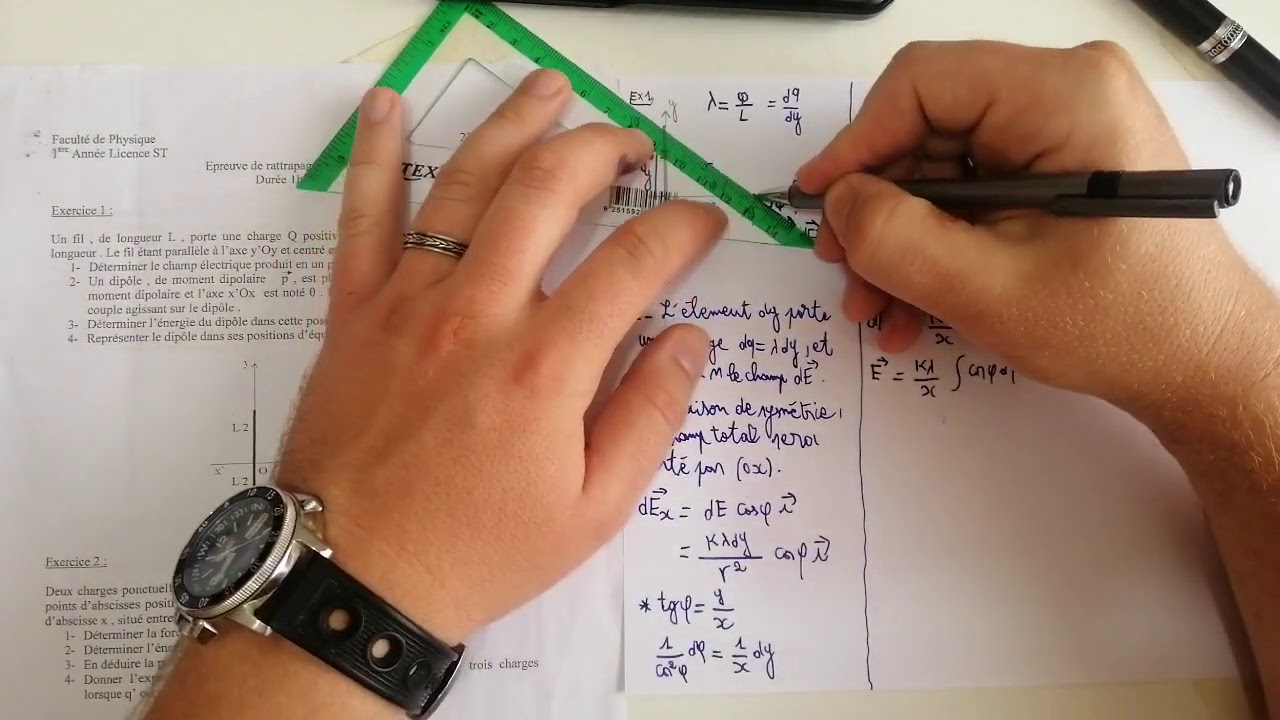 Faculté de Physique
1ère Année Licence ST
Epreuve de rattrapag
Durée 1h
Exercice 1 :
Un fil , de longueur L , porte une charge Q positiv
longueur . Le fil étant parallèle à l'axe y'Oy et centré e
1- Déterminer le champ électrique produit en un p
2- Un dipôle , de moment dipolaire p⃗ , est pl
moment dipolaire et l'axe x'Ox est noté θ .
couple agissant sur le dipôle .
3- Déterminer l'énergie du dipôle dans cette pos
4- Représenter le dipôle dans ses positions d'équ
y
L 2
x' O
L 2
Exercice 2 :
Deux charges ponctuel
points d'abscisses positi
d'abscisse x , situé entre
1- Déterminer la for
2- Déterminer l'éne
3- En déduire la p trois charges
4- Donner l'exp
lorsque q'
TEX
Ex1
y
λ = Q/L = dq/dy
L'élement dy porte
ge dq = λdy, et
M le champ dE⃗.
aison de symétrie,
amp total sera
té par (Ox).
dE⃗x = dE cosφ i⃗
= Kλdy/r² cosφ i⃗
* tgφ = y/x
1/cos²φ dφ = 1/x dy
E⃗ = Kλ/x ∫ cosφ d